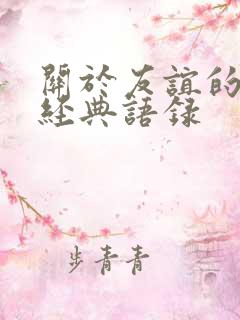 關於友誼的
經典語录
步青青